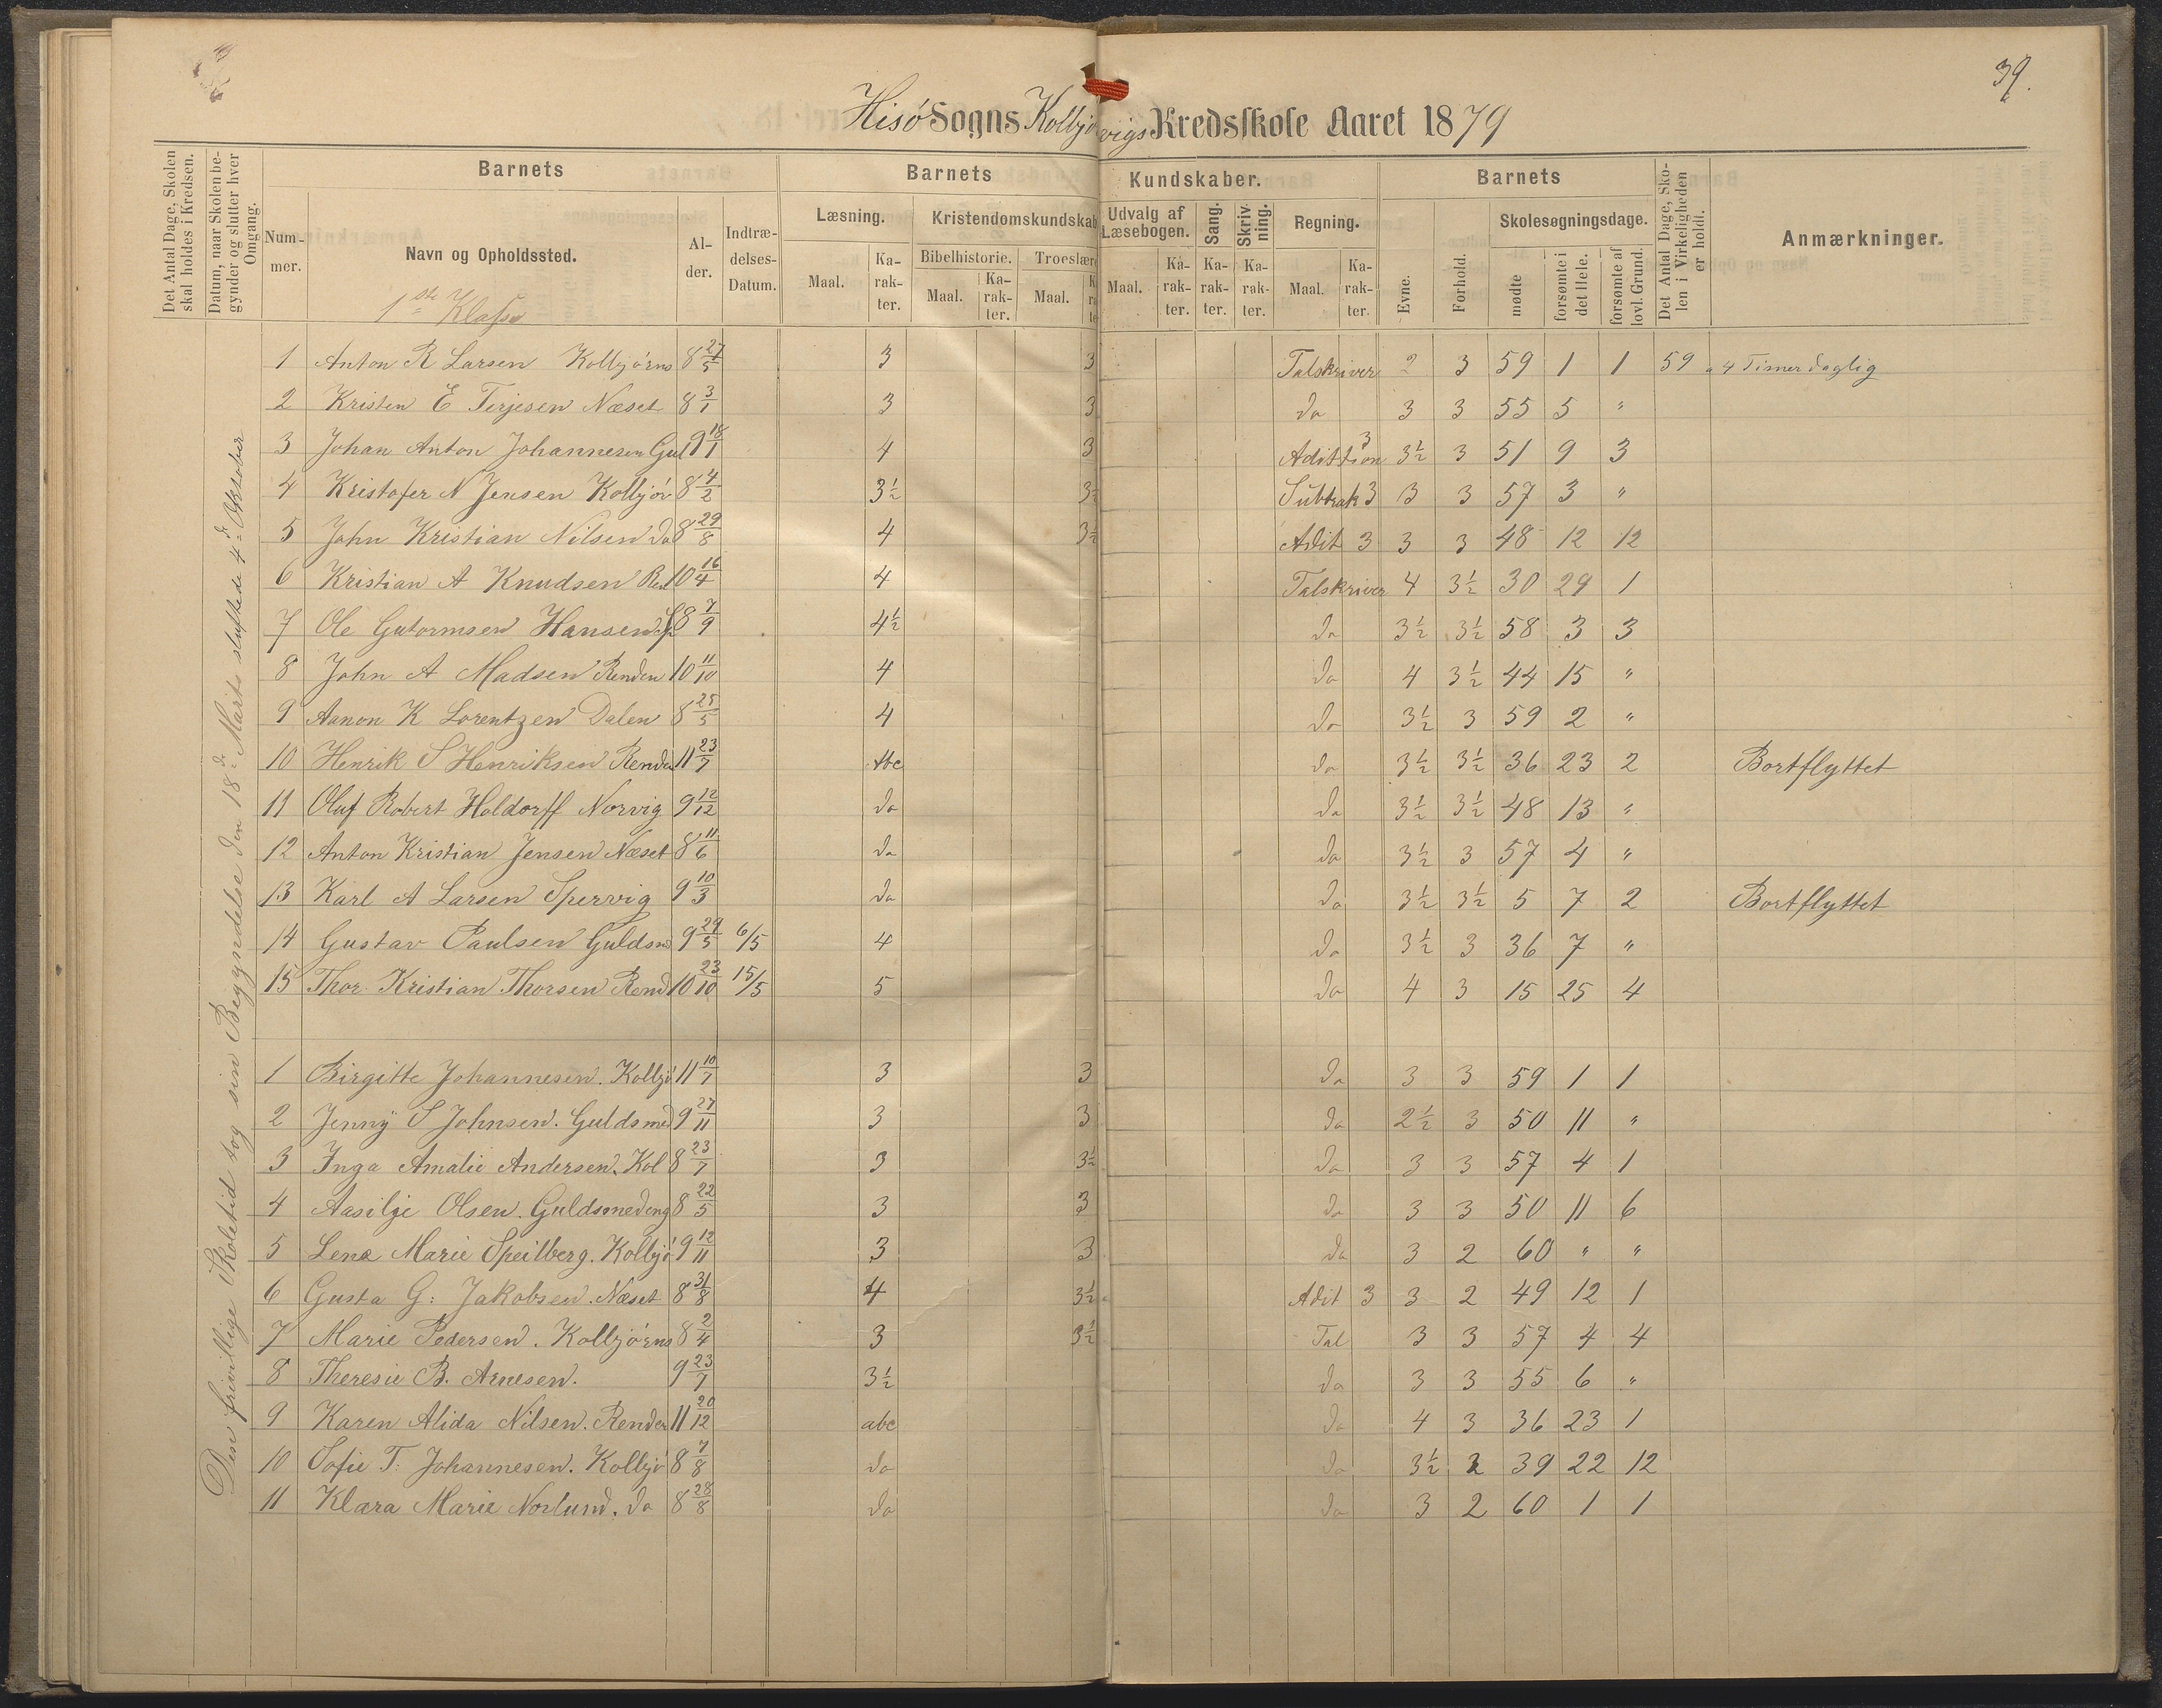 39.
Hisø Sogns Kolbjørnsvigs Kredsskole Aaret 1879
Det Antal Dage, Skolen skal holdes i Kredsen.
Datum, naar Skolen begynder og slutter hver Omgang.
Barnets
Nummer.
Navn og Opholdssted.
Alder.
Indtrædelses-Datum.
Barnets Kundskaber.
Læsning.
Maal.
Karakter.
Kristendomskundskab
Bibelhistorie.
Maal.
Karakter.
Troeslære
Maal.
Udvalg af Læsebogen.
Maal.
Karakter.
Sang.
Karakter.
Skrivning.
Karakter.
Regning.
Maal.
Karakter.
Barnets
Evne.
Forhold.
Skolesøgningsdage.
mødte
forsømte i det Hele.
forsømte af lovl. Grund.
Det Antal Dage, Skolen i Virkeligheden er holdt.
Anmærkninger.
1ste Klasse
Den frivillige Skoletid tog sin Begyndelse den 18de Marts sluttede 4de Oktober
1 Anton R Larsen Kolbjørns 8 27/5 3 3 Talskriver 2 3 59 1 1 59 a 4 Timer daglig
2 Kristen E Terjesen Næset 8 3/1 3 3 do 3 3 55 5 "
3 Johan Anton Johannesen Gul 9 18/1 4 3 Adittion 3 3½ 3 51 9 3
4 Kristofer N Jensen Kolbjør 8 4/2 3½ 3½ Subtrak 3 3 3 57 3 "
5 John Kristian Nilsen do 8 29/8 4 3½ Adit 3 3 3 48 12 12
6 Kristian A Knudsen Ren 10 16/4 4 Talskriver 4 3½ 30 29 1
7 Ole Gutormsen Hansen 8 7/9 4½ do 3½ 3½ 58 3 3
8 John A Madsen Renden 10 11/10 4 do 4 3½ 44 15 "
9 Aanon K Lorentzen Dalen 8 25/5 4 do 3½ 3 59 2 "
10 Henrik S Henriksen Rende 11 23/7 Abc do 3½ 3½ 36 23 2 Bortflyttet
11 Oluf Robert Holdorff Norvig 9 12/12 do do 3½ 3½ 48 13 "
12 Anton Kristian Jensen Næset 8 11/6 do do 3½ 3 57 4 "
13 Karl A Larsen Spervig 9 10/3 do do 3½ 3½ 5 7 2 Bortflyttet
14 Gustav Paulsen Guldsm 9 29/5 6/5 4 do 3½ 3 36 7 "
15 Thor Kristian Thorsen Rend 10 23/10 15/5 5 do 4 3 15 25 4
1 Birgitte Johannesen. Kolbjø 11 10/7 3 3 do 3 3 59 1 1
2 Jenny S Johnsen. Guldsmed 9 27/11 3 3 do 2½ 3 50 11 "
3 Inga Amalie Andersen. Kol 8 23/7 3 3½ do 3 3 57 4 1
4 Aasilje Olsen. Guldsmedeng 8 22/5 3 3 do 3 3 50 11 6
5 Lena Marie Speilberg. Kolbjø 9 12/11 3 3 do 3 2 60 " "
6 Gusta G: Jakobsen. Næset 8 31/8 4 3½ Adit 3 3 2 49 12 1
7 Marie Pedersen. Kolbjørns 8 2/4 3 3½ Tal 3 3 57 4 4
8 Theresie B. Arnesen. 9 23/7 3½ do 3 3 55 6 "
9 Karen Alida Nilsen. Renden 11 20/12 abc do 4 3 36 23 1
10 Sofie T. Johannesen. Kolbjø 8 7/8 do do 3½ 2 39 22 12
11 Klara Marie Norlund. do 8 28/8 do do 3 2 60 1 1